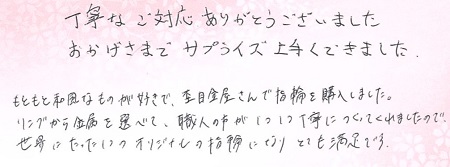 丁寧な ご対応 ありがとうございました
おかげさまで サプライズ 上手くできました.
もともと和風なものが好きで、杢目金屋さんで指輪を購入しました。
リングから金属を選べて、職人の方が1つ1つ丁寧につくってくれましたので、
世界にたった1つオリジナルの指輪になり とても満足です。